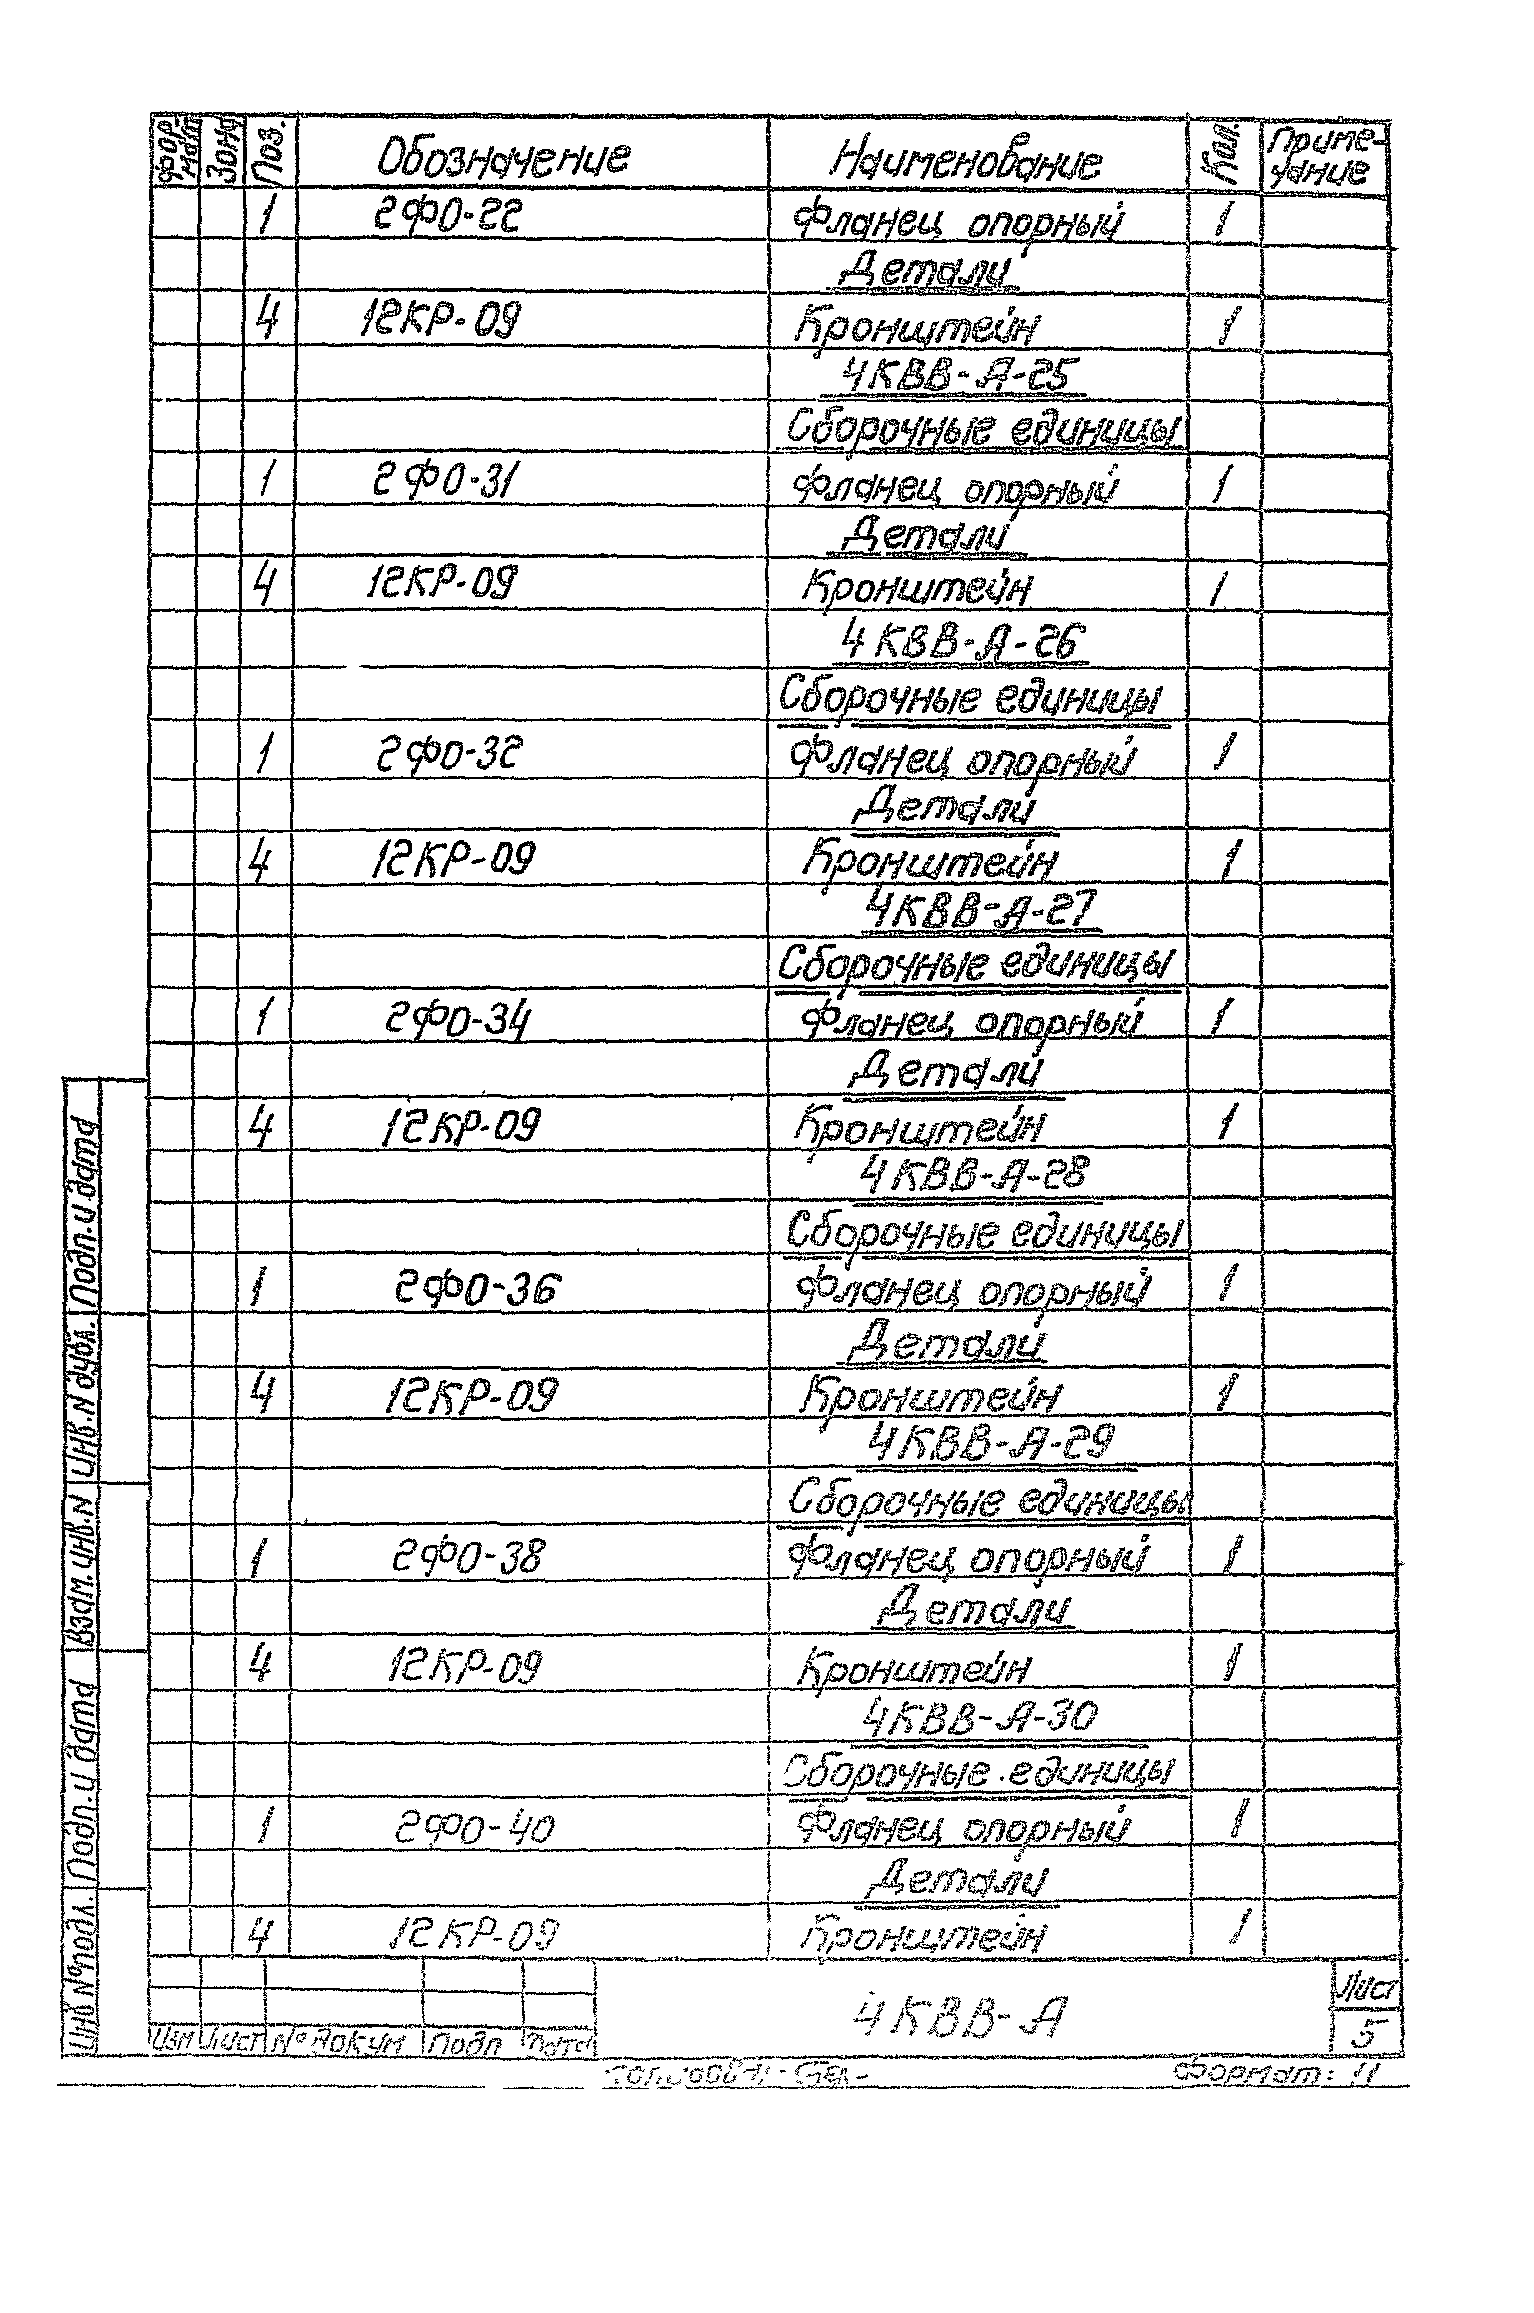 Фор-мат Зона Поз. Обозначение Наименование Кол. Приме-чание
1 2ФО-22 Фланец опорный 1
Детали
4 12КР-09 Кронштейн 1
4КВВ-А-25
Сборочные единицы
1 2ФО-31 Фланец опорный 1
Детали
4 12КР-09 Кронштейн 1
4КВВ-А-26
Сборочные единицы
1 2ФО-32 Фланец опорный 1
Детали
4 12КР-09 Кронштейн 1
4КВВ-А-27
Сборочные единицы
1 2ФО-34 Фланец опорный 1
Детали
4 12КР-09 Кронштейн 1
4КВВ-А-28
Сборочные единицы
1 2ФО-36 Фланец опорный 1
Детали
4 12КР-09 Кронштейн 1
4КВВ-А-29
Сборочные единицы
1 2ФО-38 Фланец опорный 1
Детали
4 12КР-09 Кронштейн 1
4КВВ-А-30
Сборочные единицы
1 2ФО-40 Фланец опорный 1
Детали
4 12КР-09 Кронштейн 1
Подп. и дата
Инв. N дубл.
Взам. инв. N
Подп. и дата
Инв N°подл.
Изм Лист N° докум Подп Дата
4КВВ-А
Лист
5
Формат: 11